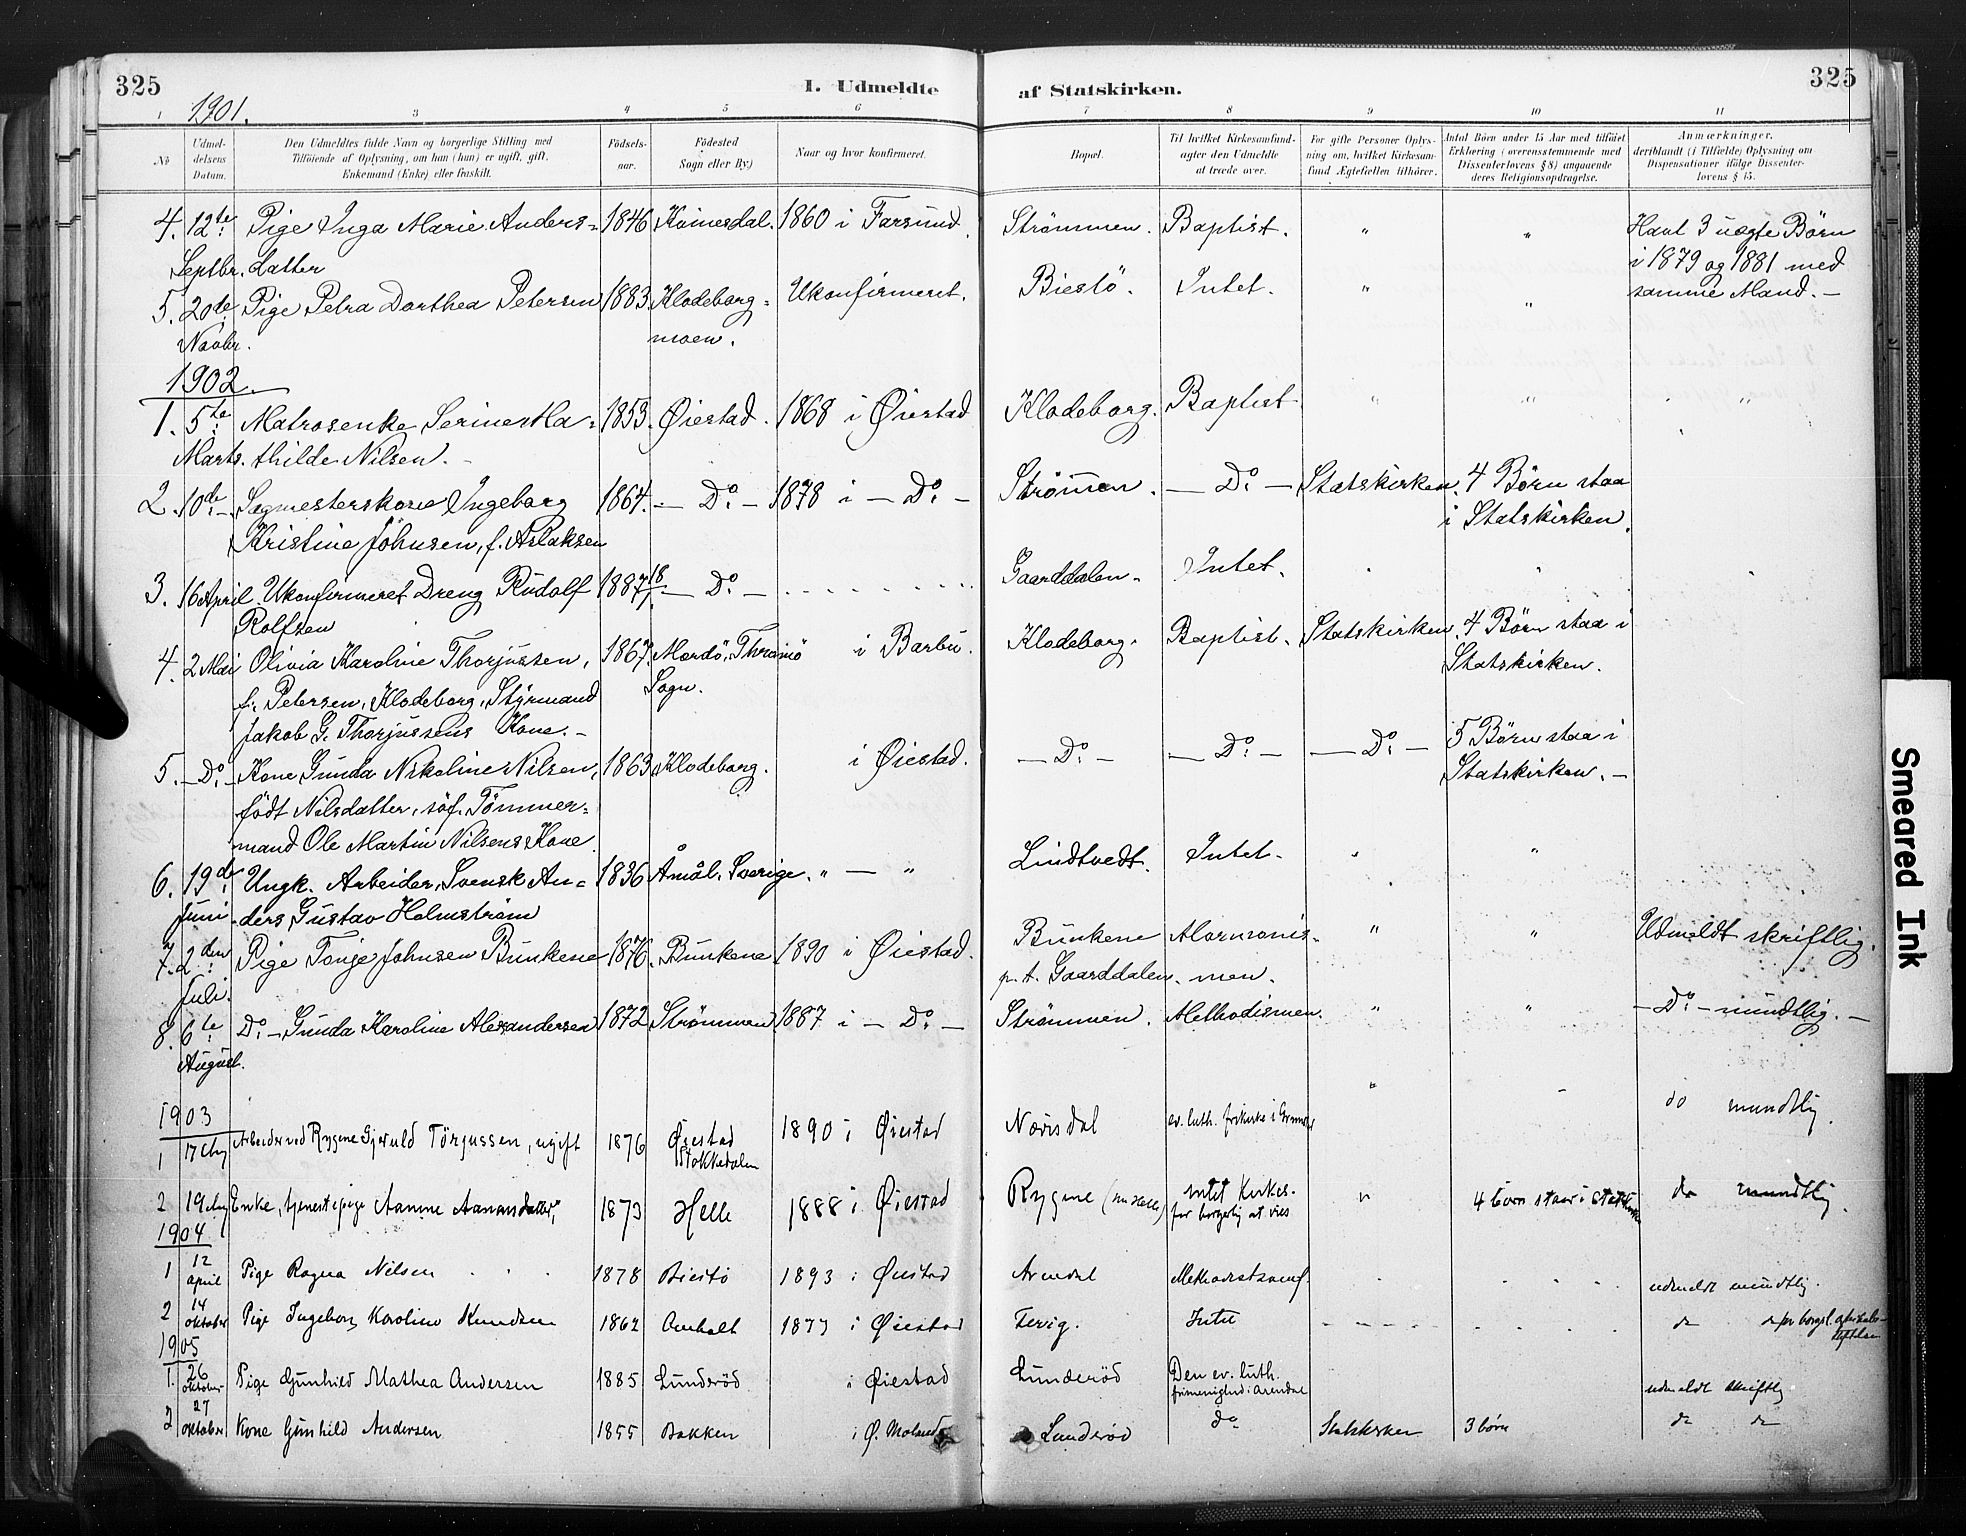 325
I. Udmeldte af Statskirken.
325
1901.
1 3 4 5 6 7 8 9 10 11
№
Udmeldelsens Datum.
Den Udmeldtes fulde Navn og borgerlige Stilling med
Tilföiende af Oplysning, om han (hun) er ugift, gift,
Enkemand (Enke) eller fraskilt.
Födselsaar.
Födested
(Sogn eller By.)
Naar og hvor konfirmeret.
Bopæl.
Til hvilket Kirkesamfund
agter den Udmeldte
at træde over.
For gifte Personer Oplysning
om, hvilket Kirkesamfund
Ægtefællen tilhörer.
Antal Börn under 15 Aar med tilföiet
Erklæring (overensstemmende med
Dissenterlovens § 8) angaaende
deres Religionsopdragelse.
Anmærkninger,
deriblandt (i Tilfælde) Oplysning om
Dispensationer ifölge Dissenterlovens § 15.
4. 12te Pige Inga Marie Anders= 1846 Kvinesdal. 1860 i Farsund. Strömmen. Baptist. " " Havt 3 uægte Börn
Septbr. datter i 1879 og 1881 med
5. 20de Pige Petra Dorthea Petersen 1883 Klodeborg= Ukonfirmeret. Biestö. Intet. " " samme Mand. —
Novbr. moen.
1902.
1. 5te Matrosenke Serine Ma= 1853. Øiestad. 1868 i Øiestad Klodeborg. Baptist " " "
Marts. thilde Nilsen. —
2. 10de — Sagmesterskone Ingeborg 1864. — Do — 1878 i — Do — Strömmen. — Do — Statskirken. 4 Börn staa
Kristine Johnsen, f. Aslaksen i Statskirken.
3. 16 April Ukonfirmeret Dreng Rudolf 1887 18/1. — Do — Gaarddalen. Intet.
Rolfsen
4. 2 Mai Olivia Karoline Thorjussen, 1867. Merdö, Thromö i Barbu. Klodeborg. Baptist. Statskirken. 4 Börn staa i
f. Petersen, Klodeborg, Styrmand Sogn. Statskirken.
Jakob G. Thorjussens Kone. —
5. — Do — Kone Gunda Nikoline Nilsen, 1863 Klodeborg. i Øiestad. — Do — — Do — — Do — 5 Börn staa i
födt Nilsdatter, söf. Tömmer= Statskirken. —
mand Ole Martin Nilsens Kone.
6. 19de Ungk. Arbeider, Svensk An= 1836 Åmål. Sverige. " — " Lindtvedt. Intet. " "
Juni. ders Gustav Holmström
7. 2den Pige Tonje Johnsen Bunkene 1876. Bunkene 1890 i Øiestad. Bunkene Mormonis= " " Udmeldt skriftlig.
Juli. p. t. Gaarddalen. men.
8. 6te Do — Gunda Karoline Alexandersen 1872 Strömmen 1887 i — Do — Strömmen. Methodismen. " " — Do — mundtlig. —
August.
1903
1 Arbeider ved Rygene Gjeruld Törjussen, ugift 1876 Øiestad 1890 i Øiestad Növisdal ev. luth. frikirke i " do mundtlig
Stokkedalen
2 Enke, tjenestepige Aanne Aanonsdatter, 1873 Helle 1888 i Øiestad Rygene intet Kirkes. " 4 börn staar i do mundtlig
for borgerlig at vies
1904
1 12 april Pige Ragna Nilsen 1878 Biestö 1893 i Øiestad Arendal Methodistsamf. udmeldt mundtlig.
2 14 oktober Pige Ingeborg Karoline Knudsen 1862 Omholt 1877 i Øiestad Fevig. Intet do
1905
1. 26 oktober Pige Gunhild Mathea Andersen 1885 Lunderöd i Øiestad Lunderöd Den ev. luth. udmeldt skriftlig
frimenighed i Arendal
2 27 oktober Kone Gunhild Andersen 1855 Bakken i Ø. Moland Lunderöd do Statskirken 3 börn do do
Smeared Ink